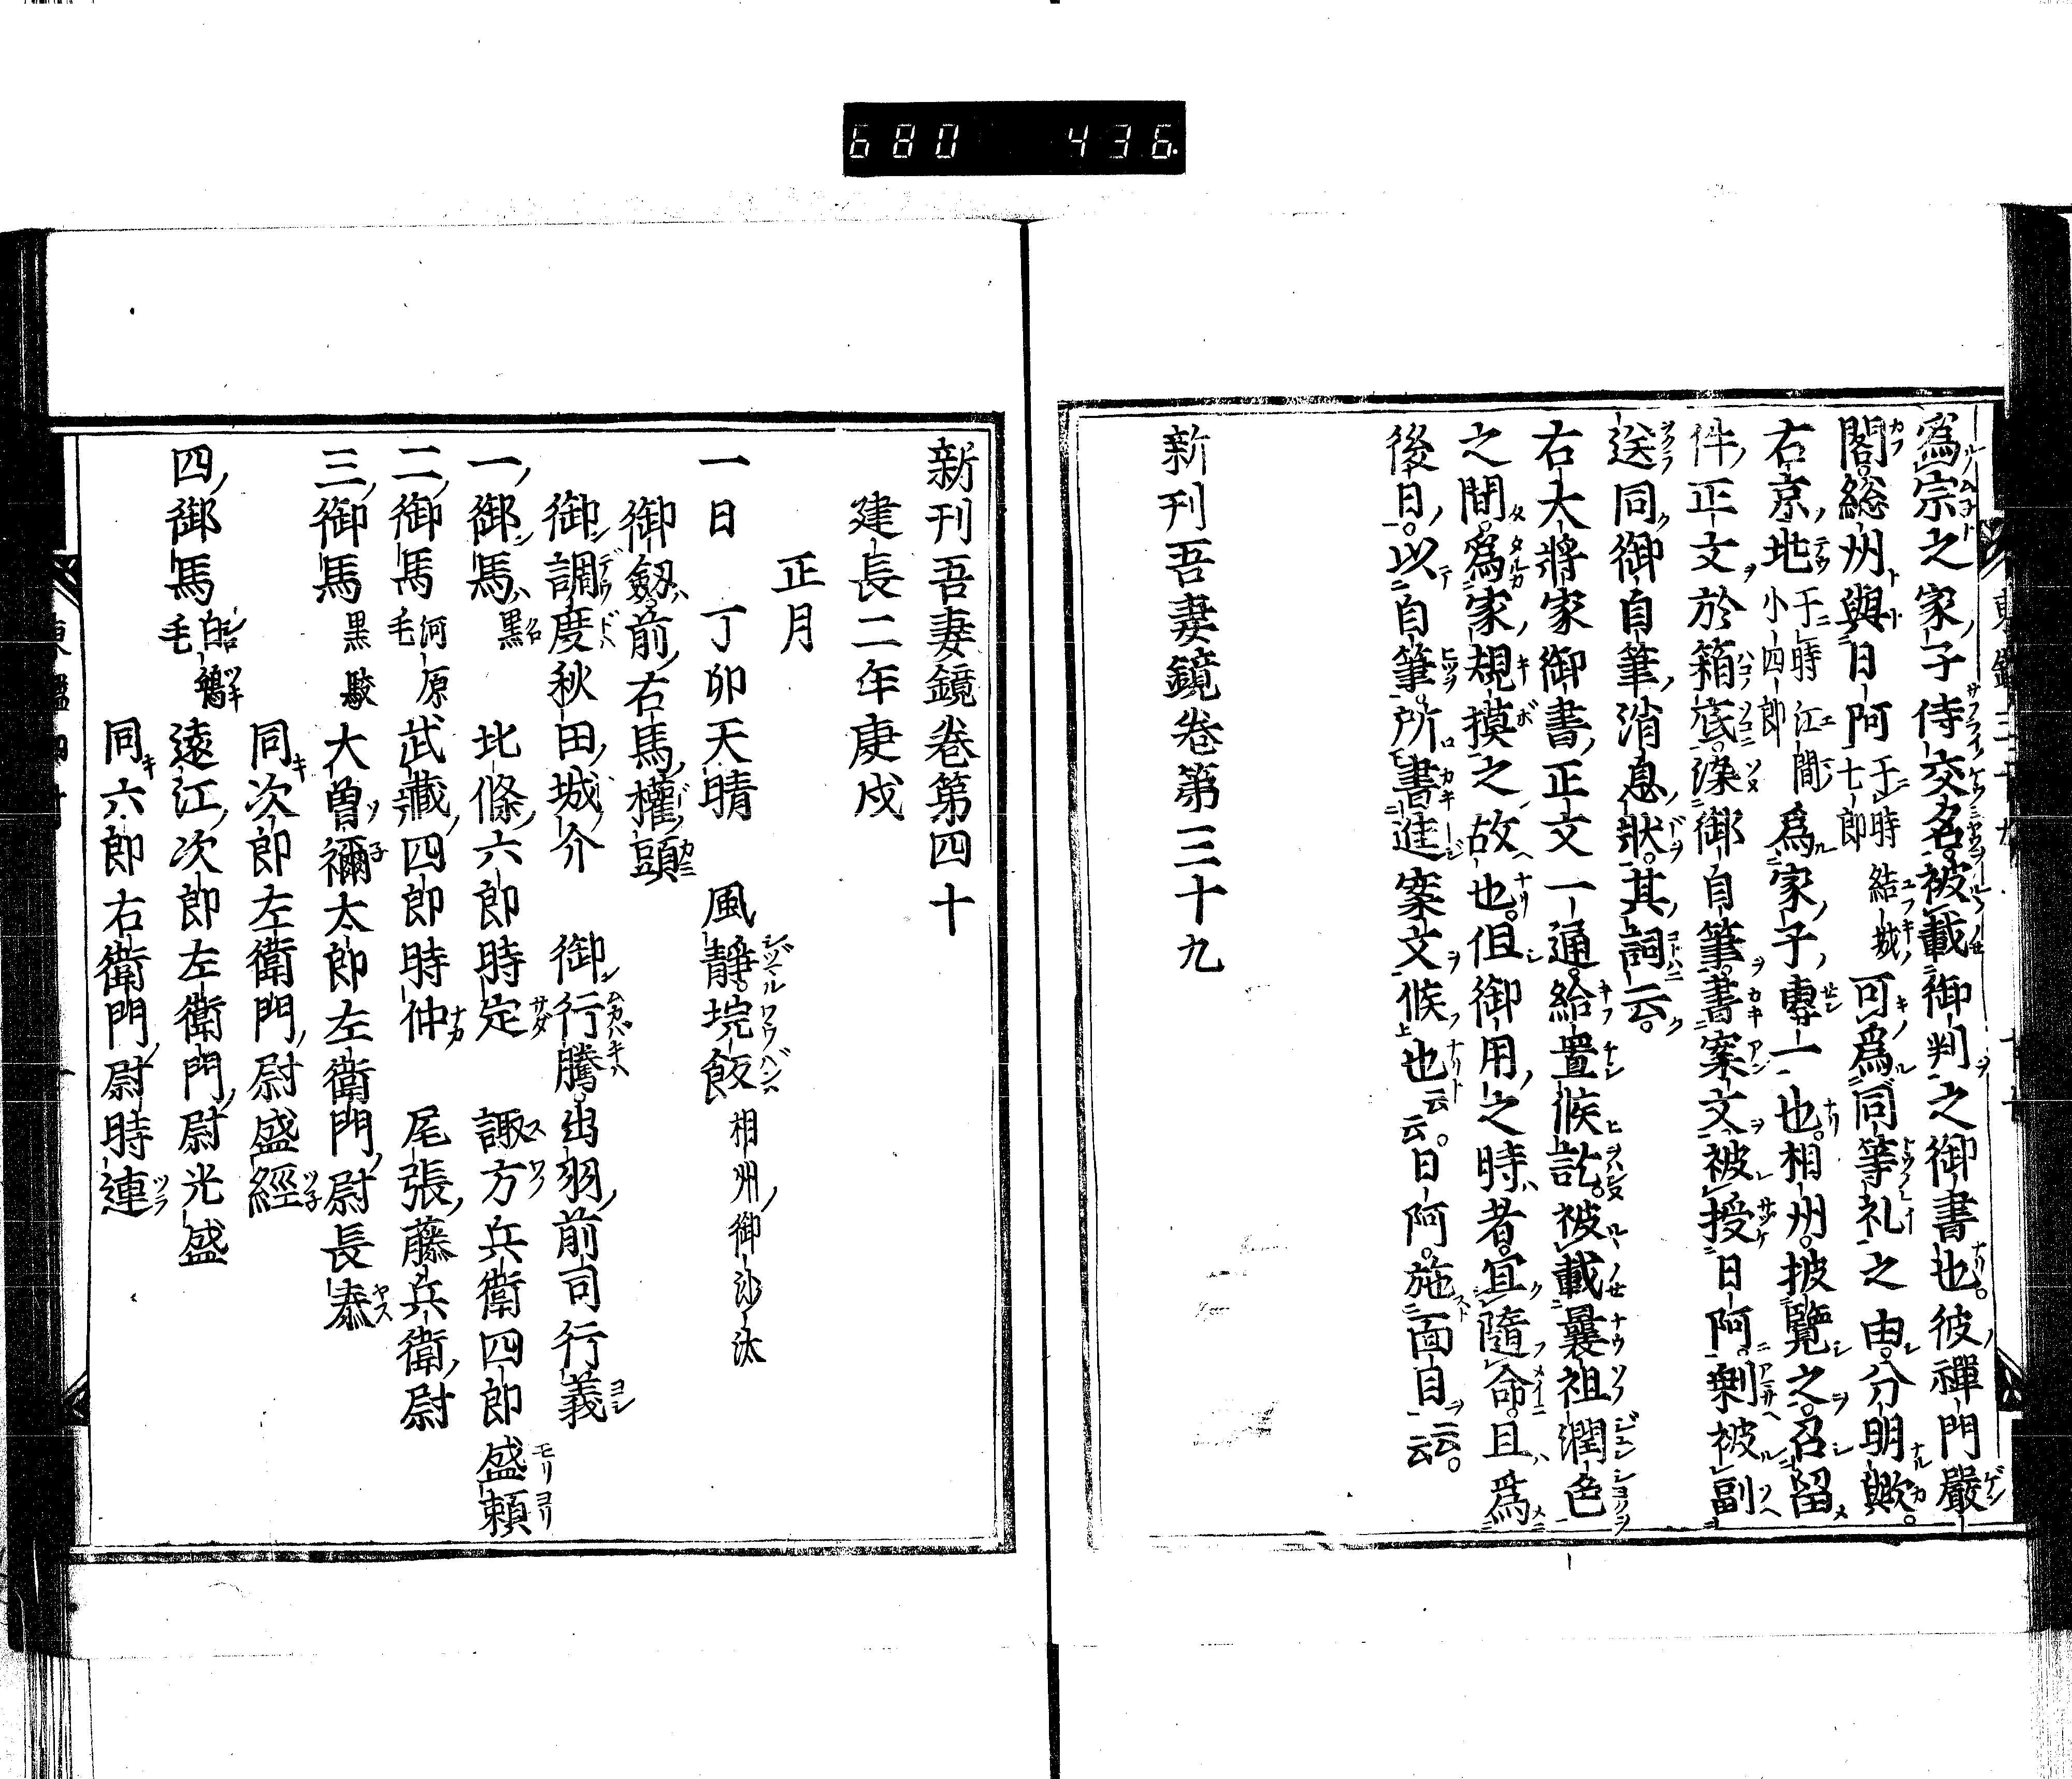 680 436
爲宗之家子侍交名被載御判之御書也。彼禪門嚴
閤。總州與日阿于時結城七郎可爲同等礼之由。分明歟。
右京兆于時江間小四郎爲家子專一也。相州。披覽之。召留
件正文於箱底。染御自筆。書案文被授日阿。剩被副
送同御自筆消息狀。其詞云。
右大將家御書正文一通。給置候訖。被載曩祖潤色
之間。爲家規摸之故也。但御用之時者。宜隨命。且爲
後日。以自筆。所書進案文候也云云。日阿。施面目云云。
新刊吾妻鏡卷第三十九
新刊吾妻鏡卷第四十
建長二年庚戌
正月
一日 丁卯天晴 風靜。垸飯相州御沙汰
御劔。前右馬權頭
御調度秋田城介 御行騰。出羽前司行義
一御馬黑 北條六郎時定 諏方兵衛四郎盛頼
二御馬河原毛 武藏四郎時仲 尾張藤兵衛尉
三御馬黑駮 大曽禰太郎左衛門尉長泰
同次郎左衛門尉盛經
四御馬白鴾毛 遠江次郎左衛門尉光盛
同六郎右衛門尉時連